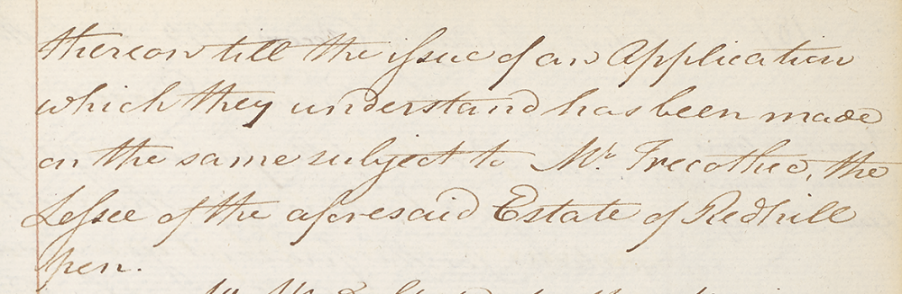 thereon till the issue of an Application
which they understand has been made
on the same subject to Mr. Trecothic, the
Lessee of the aforesaid Estate of Redhill
pen.